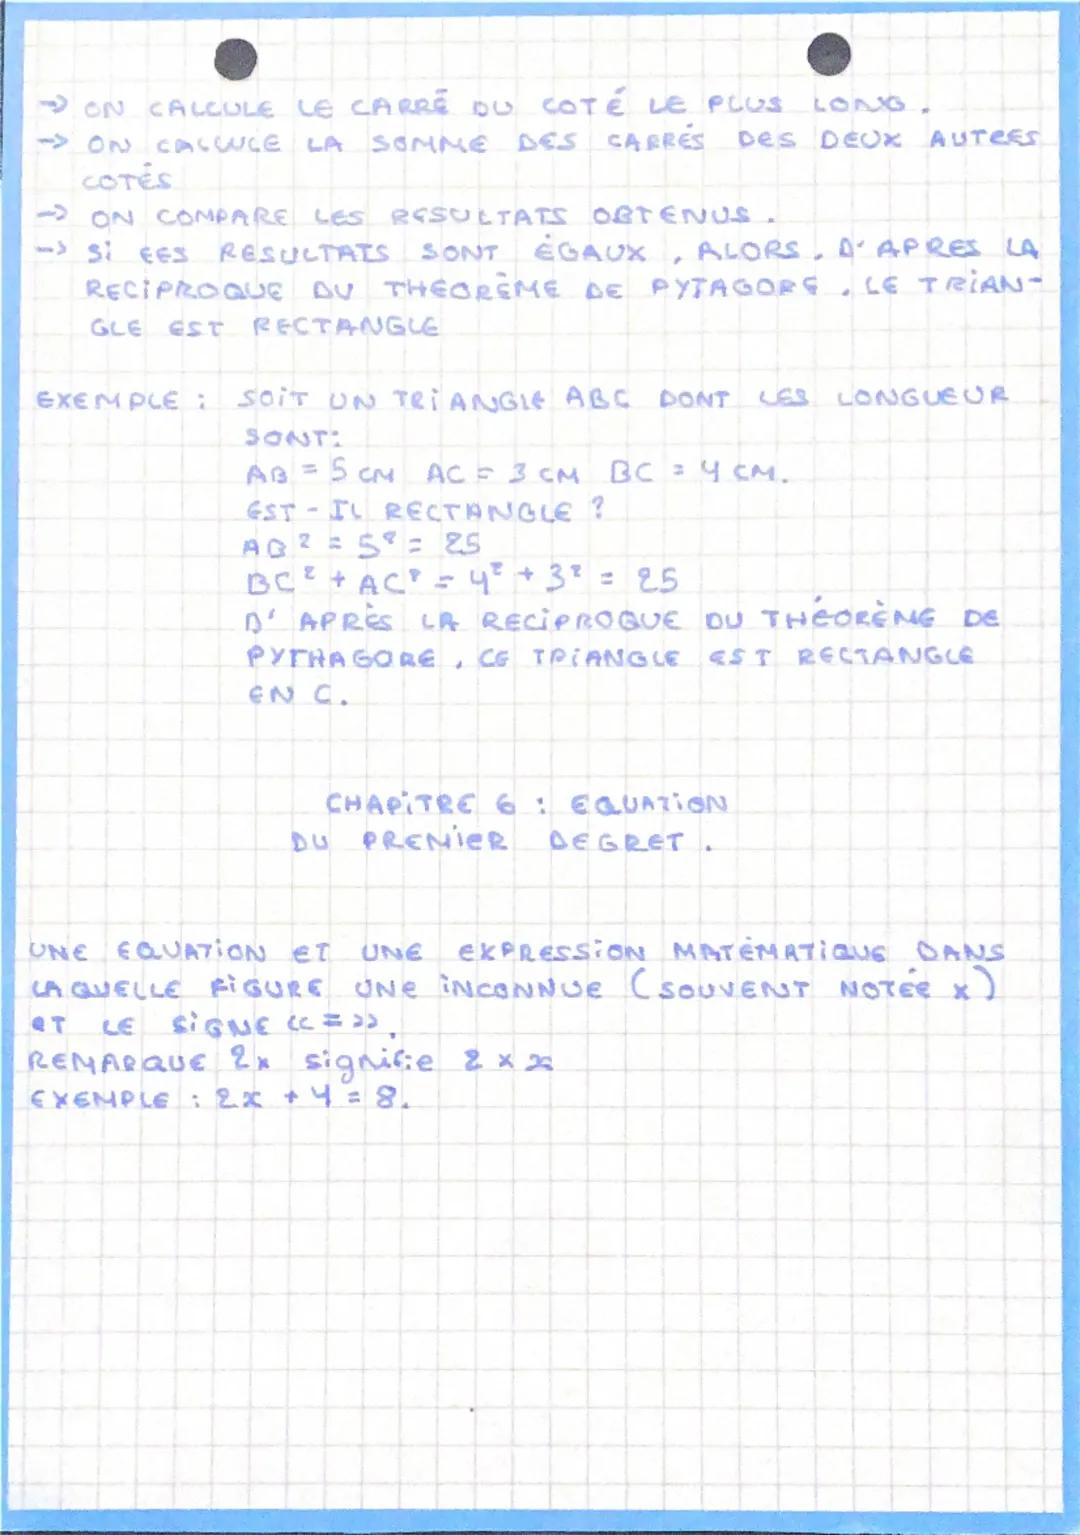 → ON CALCULE LE CARRÉ DU COTÉ LE PLUS LONG.
→ ON CALCULE LA SOMME DES CARRÉS DES DEUX AUTRES
COTÉS
→ ON COMPARE LES RESULTATS OBTENUS.
→ Si LES RESULTATS SONT ÉGAUX, ALORS, D'APRES LA
RECIPROQUE DU THEORÈME DE PYTAGORE, LE TRIAN-
GLE EST RECTANGLE
EXEMPLE : SOIT UN TRIANGLE ABC DONT LES LONGUEUR
SONT:
AB = 5 CM AC = 3 CM BC = 4 CM.
EST-IL RECTANGLE ?
AB² = 5² = 25
BC² + AC² = 4² + 3² = 25
D'APRÈS LA RECIPROQUE DU THÉORÈME DE
PYTHAGORE, CE TRIANGLE EST RECTANGLE
EN C.
CHAPITRE 6 : EQUATION
DU PREMIER DEGRET.
UNE EQUATION ET UNE EXPRESSION MATÉMATIQUE DANS
LAQUELLE FIGURE UNE INCONNUE (SOUVENT NOTÉE x)
ET LE SIGNE << = >>.
REMARQUE 2x signifie 2 × x
EXEMPLE : 2x + 4 = 8.